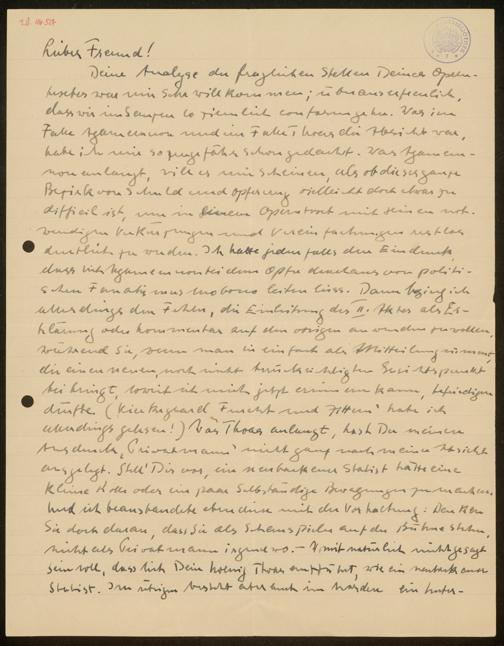 Lieber Freund!
Deine Analyse der fraglichen Stellen Deines Opern-
textes war mir sehr willkommen; überaus erfreulich,
dass wir im Ganzen so ziemlich conform gehn. Was im
Falle Agamemnon und im Falle Thoas die Absicht war,
habe ich mir so ungefähr schon gedacht. Was Agamem-
non anlangt, will es mir scheinen, als ob dieser ganze
Bezirk von Schuld und Opferung vielleicht doch etwas zu
difficil ist, um in einem Operntext mit seinen not-
wendigen Verkürzungen und Vereinfachungen restlos
deutlich zu werden. Ich hatte jedenfalls den Eindruck,
dass sich Agamemnon bei dem Opfer durchaus von politi-
schen Fanatismus leiten liess. Dann beging ich
allerdings den Fehler, die Einleitung des II. Aktes als Er-
klärung oder Kommentar auf den vorigen anwenden zu wollen,
während Sie, wenn man sie einfach als Mitteilung nimmt,
die einen neuen, noch nicht berücksichtigten Gesichtspunkt
bei bringt, soweit ich mich jetzt erinnern kann, befriedigen
dürfte (Kierkegaard Furcht und Zittern habe ich
allerdings gelesen!) Was Thoas anlangt, hast Du meinen
Ausdruck "Privatmann" nicht ganz nach meiner Absicht
ausgelegt. Stell' Dir vor, ein neubackener Statist hätte eine
kleine Rolle oder ein paar selbständige Bewegungen zu machen.
Und ich beanstandete eben diese mit der Vorhaltung: Denken
Sie doch daran, dass Sie als Schauspieler auf der Bühne stehn,
nicht als Privatmann irgendwo. – Womit natürlich nicht gesagt
sein soll, dass sich Dein Koenig Thoas aufführt, wie ein neubackener
Statist. Im übrigen besteht aber auch im ein unter-